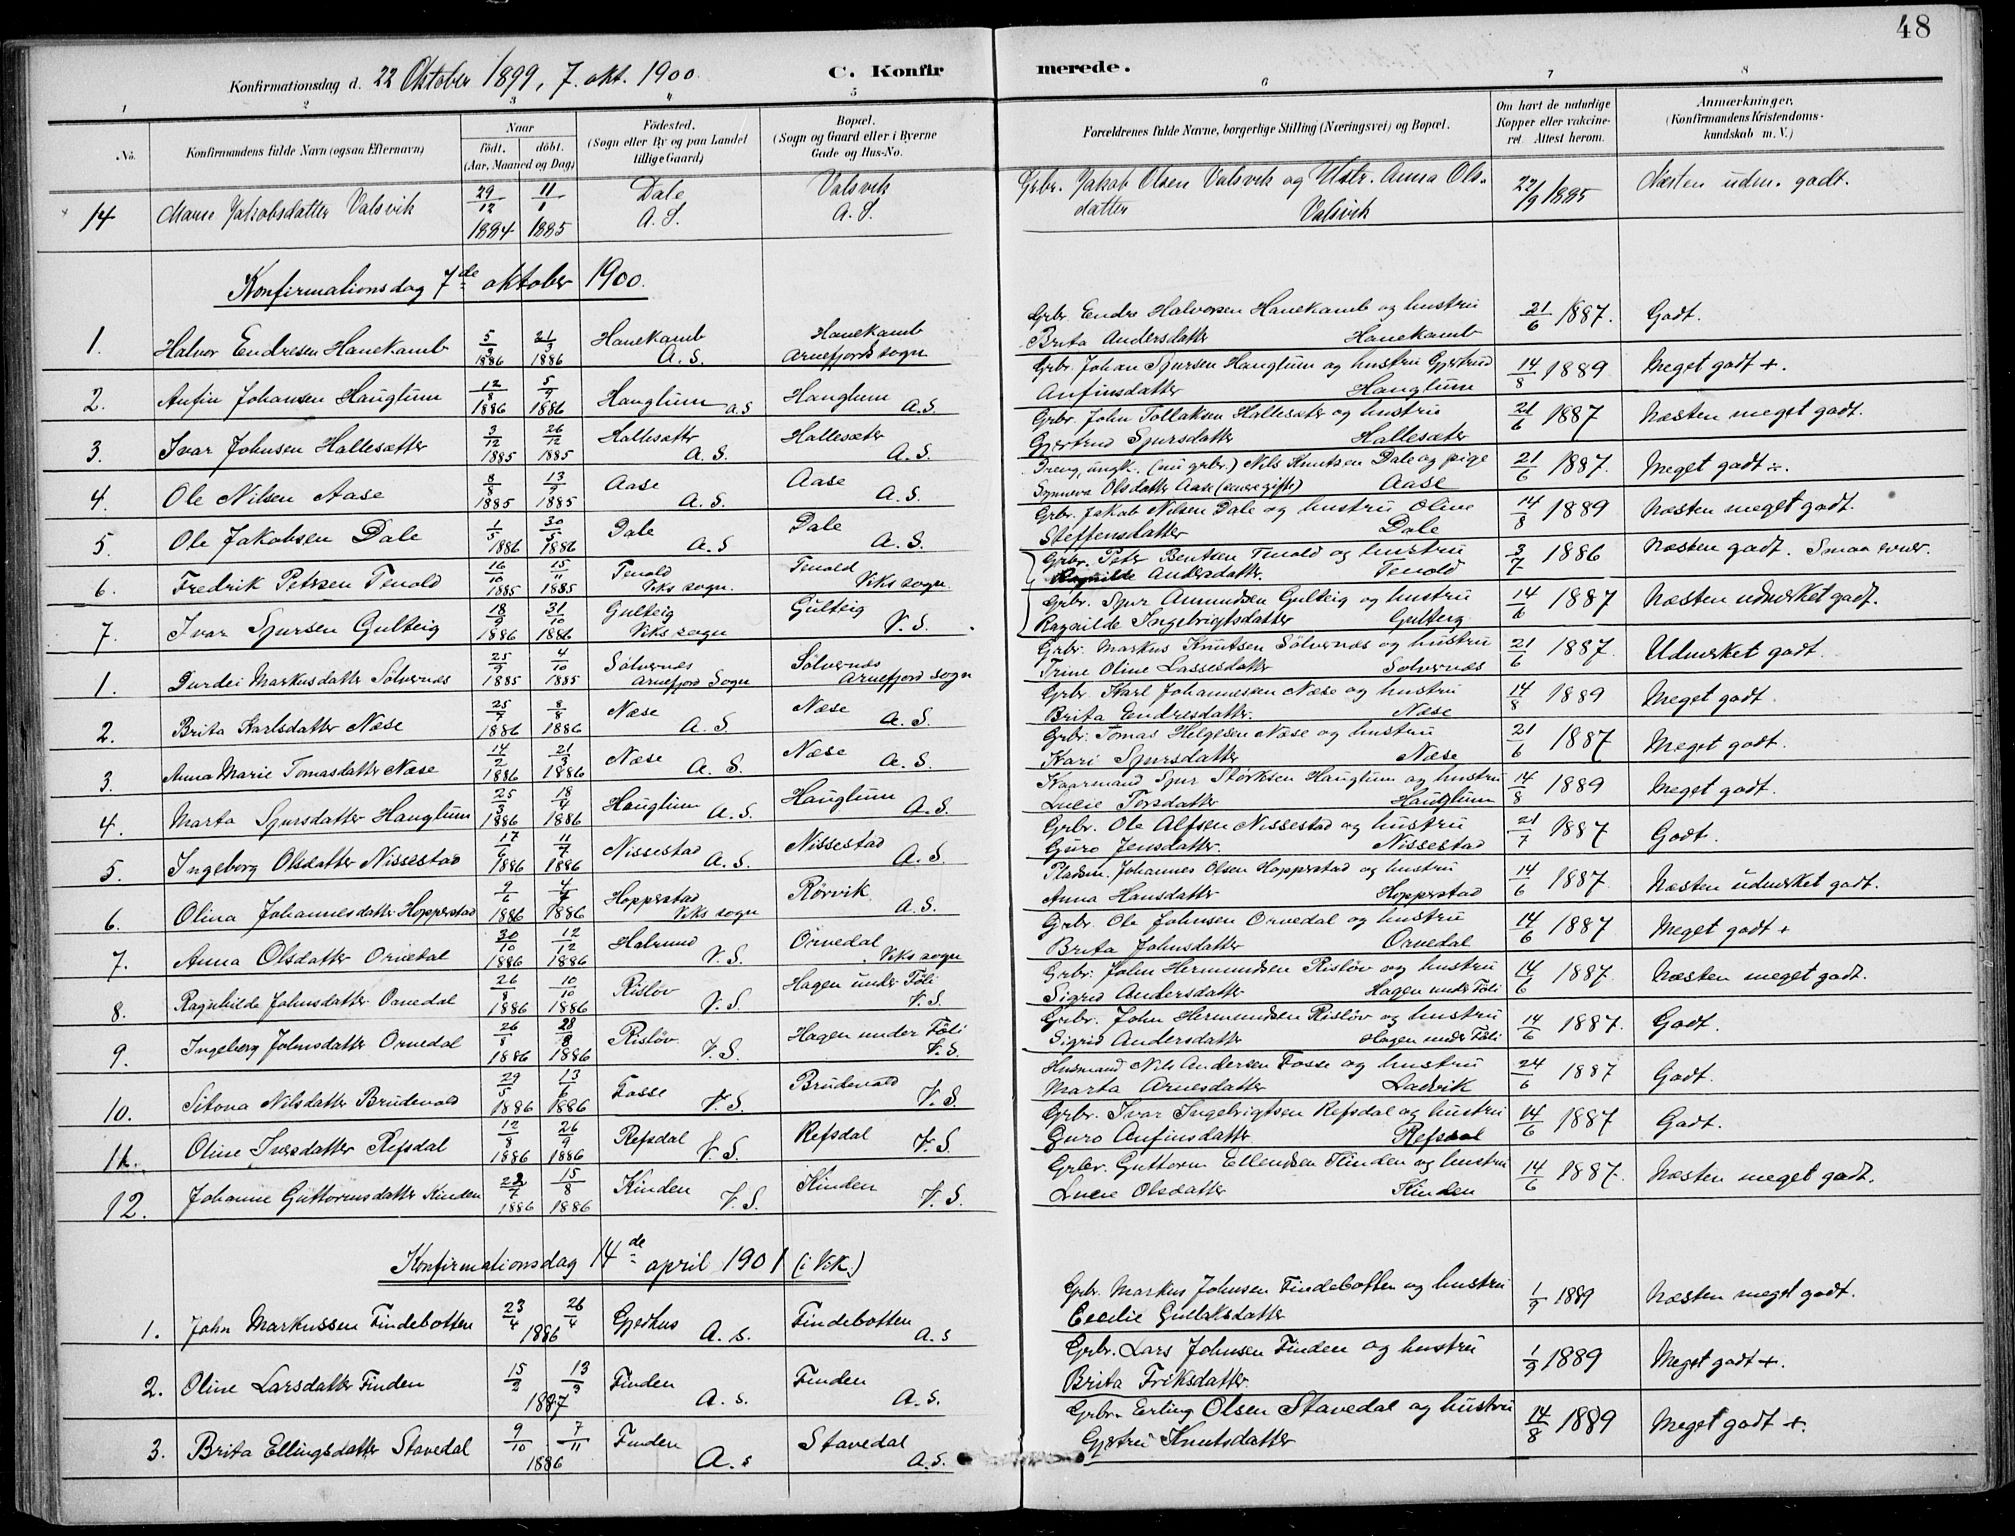 48
Konfirmationsdag d. 22 Oktober 1899, 7. okt. 1900. C. Konfir merede.
1 2 3 4 5 6 7 8
No. Konfirmandens fulde Navn (ogsaa Efternavn) Naar født. døbt. (Aar, Maaned og Dag) Fødested. (Sogn eller By og paa Landet tillige Gaard) Bopæl. (Sogn og Gaard eller i Byerne Gade og Hus-No. Forældrenes fulde Navne, borgerlige Stilling (Næringsvei) og Bopæl. Om havt de naturlige Kopper eller vakcineret. Attest herom. Anmærkninger, (Konfirmandens Kristendomskundskab m. V.)
14 Jakobsdatter Valsvik 29/12 1884 11/1 1885 Dale A. S. Valsvik A. S. Grbr. Jakob Olsen Valsvik og Hstr. Anna Olsdatter Valsvik 22/9 1885 Næsten udm. godt.
Konfirmationsdag 7de oktober 1900.
1. Halvor Endresen Hanekamb 5/3 1886 21/3 1886 Hanekamb A. S. Hanekamb Arnefjord sogn Grbr. Endre Halvorsen Hanekamb og hustru Brita Andersdatter Hanekamb 21/6 1887. Godt.
2. Anfin Johansen Hauglum 12/8 1886 5/9 1886 Hauglum A.S Hauglum A.S. Grbr. Johan Sjursen Hauglum og hustru Gjertrud Anfinsdatter Hauglum 14/8 1889 Meget godt +.
3. Ivar Johnsen Hallesætter 3/12 1885 26/12 1885 Hallesætter A. S. Hallesæter A. S. Grbr. John Tollaksen Hallesæter og hustru Gjertrud Sjursdatter Hallesæter 21/6 1887 Næsten meget godt.
4. Ole Nilsen Aase 8/8 1885 13/9 1885 Aase A. S. Aase A. S. Dreng, ungk. (nu grbr.) Nils Knutsen Dale og pige Synneva Olsdatter Aase (senere gifte) Aase 21/6 1887. Meget godt ÷.
5. Ole Jakobsen Dale 1/5 1886 30/5 1886 Dale A. S Dale A. S. Grbr. Jakob Nilsen Dale og hustru Oline Steffensdatter Dale 14/8 1889 Næsten meget godt.
6. Fredrik Petersen Tenold 16/10 1885 15/11 1885 Tenold Viks sogn. Tenold Viks sogn. Grbr. Peter Bentsen Tenold og hustru Ragnilde Andersdatter. Tenold 3/7 1886 Næsten godt. Smaa evner.
7. Ivar Sjursen Gulteig 18/9 1886 31/10 1886 Gulteig Viks sogn Gulteig V. S. Grbr. Sjur Amundsen Gulteig og hustru Ragnilde Ingebrigtsdatter Gulteig 14/6 1887 Næsten udmerket godt.
1. Durdei Markusdatter Sølvernæs 25/9 1885 4/10 1885 Sølvernæs Arnefjord Sogn Sølvernæs Arnefjord sogn Grbr. Markus Knutsen Sølvernæs og hustru Trine Oline Lassesdatter Solvernæs 21/6 1887. Udmerket godt.
2. Brita Karlsdatter Næse 25/7 1886 8/8 1886 Næse A. S. Næse A. S. Grbr. Karl Johannesen Næse og hustru Brita Endresdatter. Næse 14/8 1889 Meget godt.
3. Anna Marie Tomasdatter Næse 14/2 1886 21/3 1886 Næse A. S. Næse A. S. Grbr. Tomas Helgesen Næse og hustru Kari Sjursdatter Næse 21/6 1887 Meget godt.
4. Marta Sjursdatter Hauglum 25/3 1886 18/4 1886 Hauglum A. S. Hauglum A. S. Kaarmand Sjur Størksen Hauglum og hustru Lucie Torsdatter Hauglum 14/8 1889 Meget godt.
5. Ingeborg Olsdatter Nissestad 17/6 1886 11/7 1886 Nissestad A. S. Nissestad A. S Grbr. Ole Alfsen Nissestad og hustru Guro Jensdatter. Nissestad 21/7 1887 Godt.
6. Olina Johannesdatter Hopperstad 9/6 1886 4/7 1886 Hopperstad Viks sogn Rørvik A. S. Pladsm. Johannes Olsen Hopperstad og hustru Anna Hansdatter Hopperstad 14/6 1887. Næsten udmerket godt.
7. Anna Olsdatter Orvedal 30/10 1886 12/12 1886 Halrund V. S. Orvedal Viks sogn Grbr. Ole Johnsen Orvedal og hustru Brita Johnsdatter Orvedal 14/6 1887 Meget godt +
8. Ragnhilde Johnsdatter Orvedal 26/8 1886 10/10 1886 Risløv V. S. Hagen under Føli V. S. Grbr. John Hermundsen Risløv og hustru Sigrid Andersdatter Hagen under Føli 14/6 1887. Næsten meget godt.
9. Ingeborg Johnsdatter Orvedal 26/8 1886 28/8 1886 Risløv. V. S. Hagen under Føli V. S. Grbr. John Hermundsen Risløv og hustru Sigrid Andersdatter Hagen under Føli 14/6 1887. Godt.
10. Sitona Nilsdatter Brudevold 29/5 1886 13/6 1886 Fosse V. S. Brudevold V. S. Husmand Nils Andersen Fosse og hustru Marta Arnesdatter Ladvik 24/6 1887 Godt.
11. Oline Iversdatter Refsdal 12/8 1886 26/9 1886 Refsdal V. S. Refsdal V. S. Grbr. Ivar Ingebrigtsen Refsdal og hustru Guro Anfinsdatter Refsdal 14/6 1887 Godt.
12. Johanne Guttormsdatter Hinden 22/7 1886 15/8 1886 Hinden V. S. Hinden V. S. Grbr. Guttorm Ellendsen Hinden og hustru Lucie Olsdatter Hinden 14/6 1887. Næsten meget godt.
Konfirmationsdag 14de april 1901 (i Vik.)
1. John Markussen Findebotten 23/4 26/4 1886 Gjedhus A. s. Findebotten A. s Grbr. Markus Johnsen Findebotten og hustru Cecilie Gullaksdatter 1/9 1889 Næsten meget godt.
2. Oline Larsdatter Finden 15/2 13/3 1887 Finden A. s. Finden A. S. Grbr. Lars Johnsen Finden og hustru Brita Eriksdatter. 1/9 1889 Meget godt +.
3. Brita Ellingsdatter Stavedal 9/10 7/11 1886 Finden A. s Stavedal A. S. Grbr. Erling Olsen Stavedal og hustru Gjertru Knutsdatter 14/8 1889 Meget godt +.